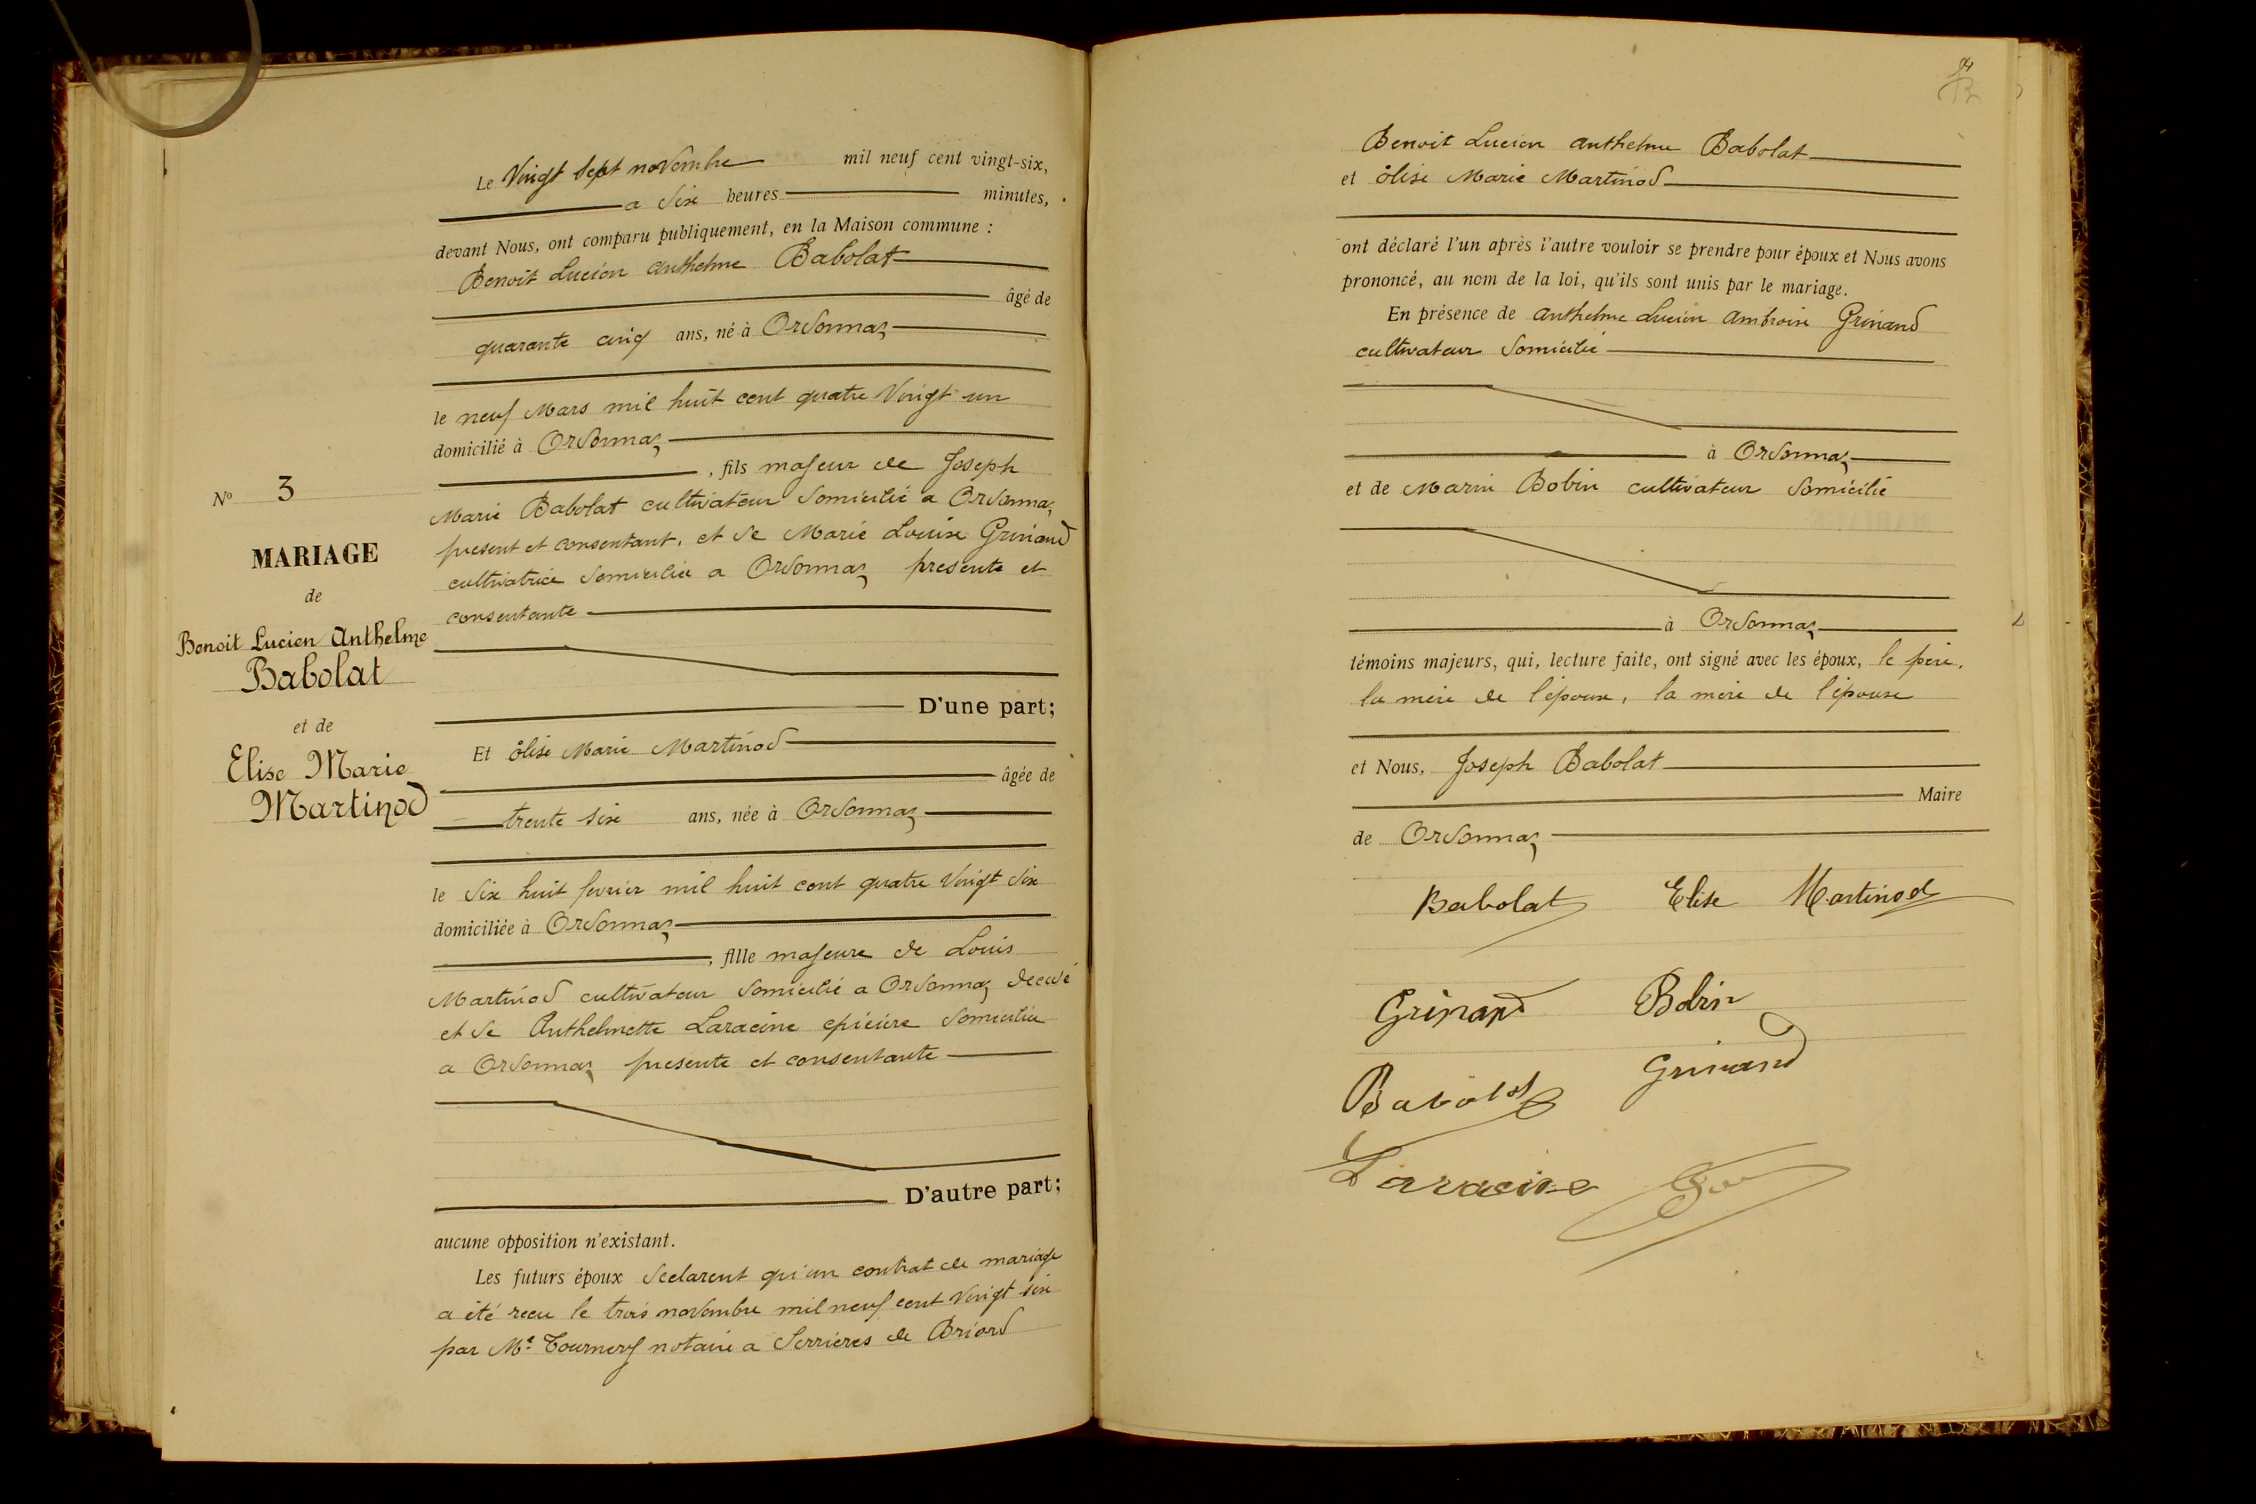 Le Vingt sept novembre mil neuf cent vingt-six,
a dix heures minutes,
devant Nous, ont comparu publiquement, en la Maison commune :
Benoit Lucien Anthelme Babolat
âgé de
quarante cinq ans, né à Ordonnaz
le neuf Mars mil huit cent quatre Vingt un
domicilié à Ordonnaz
, fils majeur de Joseph
Marie Babolat cultivateur domicilié a Ordonnaz
present et consentant, et de Marie Louise Grinand
cultivatrice domiciliée a Ordonnaz presente et
consentante
D'une part;
Et élise Marie Martinod
âgée de
trente six ans, née à Ordonnaz
le dix huit fevrier mil huit cent quatre Vingt dix
domiciliée à Ordonnaz
, fille majeure de Louis
Martinod cultivateur domicilié a Ordonnaz decedé
et de Anthelmette Laracine epicière domiciliée
a Ordonnaz presente et consentante
D'autre part;
aucune opposition n'existant.
Les futurs époux declarent qu'un contrat de mariage
a été recu le trois novembre mil neuf cent Vingt six
par Me notaire a Serrières de Briord
No 3
MARIAGE
de
Benoit Lucien Anthelme
Babolat
et de
Elise Marie
Martinod
Benoit Lucien Anthelme Babolat
et élise Marie Martinod
ont déclaré l'un après l'autre vouloir se prendre pour époux et Nous avons
prononcé, au nom de la loi, qu'ils sont unis par le mariage.
En présence de Anthelme Lucien Ambroise Grinand
cultivateur domicilié
à Ordonnaz
et de Marin Bobin cultivateur domicilié
à Ordonnaz
témoins majeurs, qui, lecture faite, ont signé avec les époux, le père,
la mère de l'époux, la mère de l'épouse
et Nous, Joseph Babolat
Maire
de Ordonnaz
Babolat Elise Martinod
Grinand Bobin
Babolat Grinand
Laracine